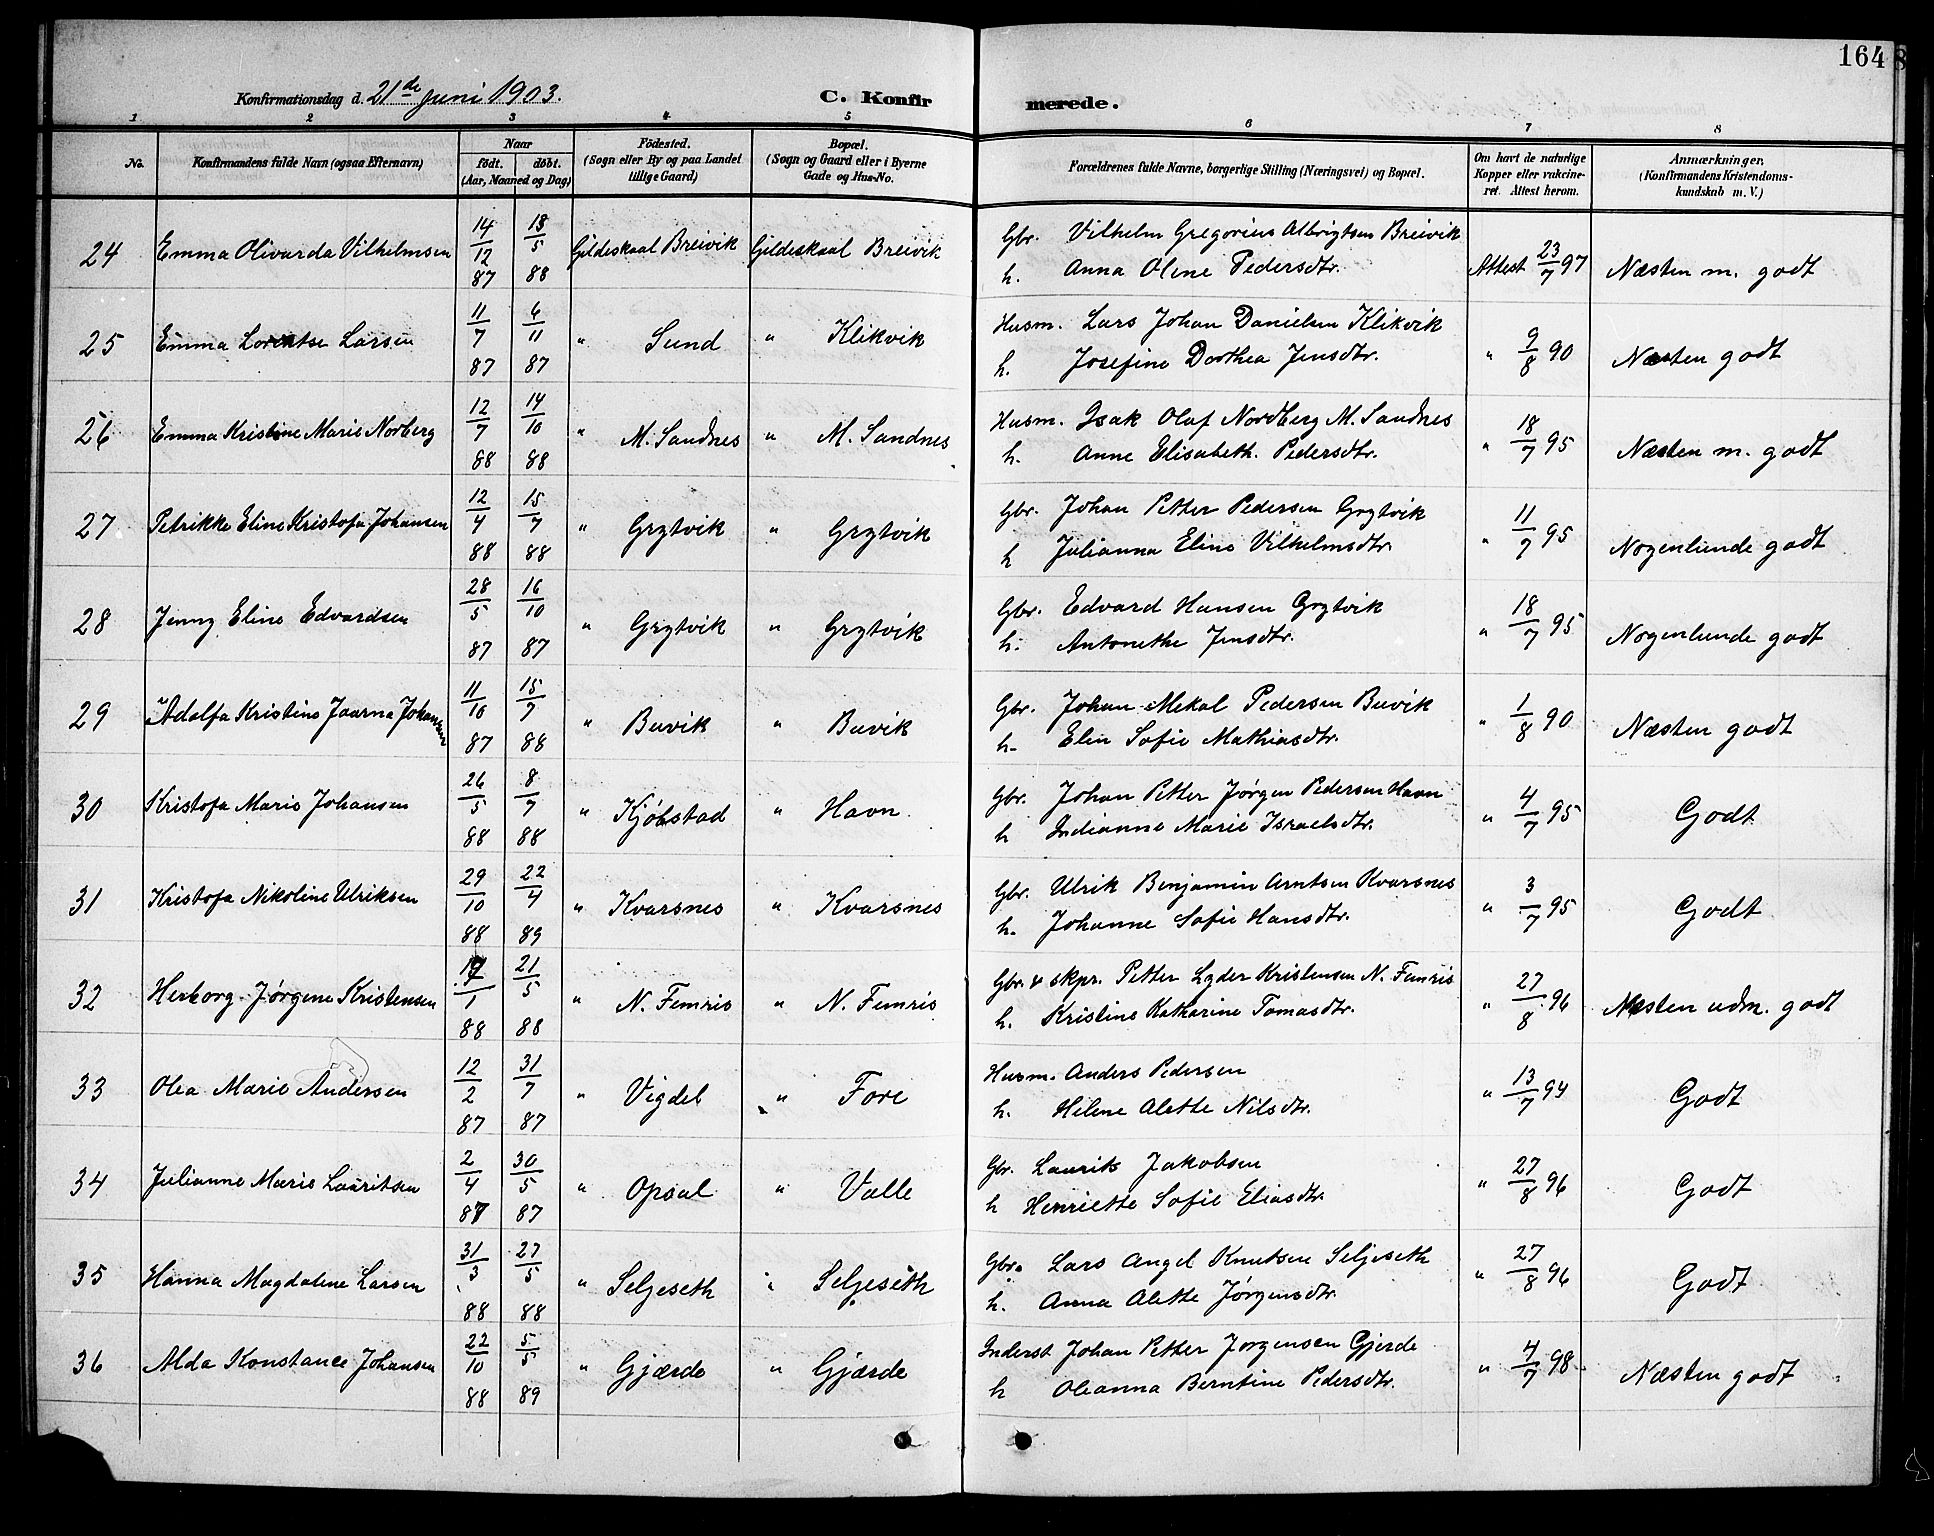 164
Konfirmationsdag d. 21de juni 1903. C. Konfirmerede.
1 2 3 4 5 6 7 8
No. Konfirmandens fulde Navn (ogsaa Efternavn) Naar født. døbt. (Aar, Maaned og Dag) Födested. (Sogn eller By og paa Landet tillige Gaard) Bopæl. (Sogn og Gaard eller i Byerne Gade og Hus-No. Forældrenes fulde Navne, borgerlige Stilling (Næringsvei) og Bopæl. Om havt de naturlige Kopper eller vakcineret. Attest herom. Anmærkninger. (Konfirmandens Kristendomskundskab m. V.)
24 Emma Olivarda Vilhelmsen 14/12 87 13/5 88 Gildeskaal Breivik Gildeskaal Breivik Gbr. Vilhelm Gregorius Albrigtsen Breivik Attest 23/7 97 Næsten m. godt
h. Anna Oline Pedersdtr.
25 Emma Lorentse Larsen 11/7 87 6/11 87 " Sund " Klikvik Husm. Lars Johan Danielsen Klikvik " 9/8 90 Næsten godt
h. Josefine Dorthea Jensdtr.
26 Emma Kristine Marie Norberg 12/7 88 14/10 88 " M. Sandnes " M. Sandnes Husm. Isak Olaf Nordberg M. Sandnes " 18/7 95 Næsten m. godt
h. Anne Elisabeth. Pedersdtr.
27 Petrikke Eline Kristofa Johansen 12/4 88 15/7 88 " Grytvik " Grytvik Gbr. Johan Petter Pedersen Grytvik " 11/7 95 Nogenlunde godt
h Julianna Eline Vilhelmsdtr.
28 Jenny Eline Edvardsen 28/5 87 16/10 87 " Grytvik " Grytvik Gbr. Edvard Hansen Grytvik " 18/7 95 Nogenlunde godt
h. Antonethe Jensdtr.
29 Adolfa Kristine Jaarna Johansen 11/10 87 15/7 88 " Buvik " Buvik Gbr. Johan Mekal Pedersen Buvik " 1/8 90 Næsten godt
h. Elen Sofie Mathiasdtr.
30 Kristofa Marie Johansen 26/5 88 8/7 88 " Kjøbstad " Havn. Gbr. Johan Petter Jørgen Pedersen Havn " 4/7 95 Godt
h Indianne Marie Israelsdtr.
31 Kristofa Nikoline Ulriksen 29/10 88 22/4 89 " Kvarsnes " Kvarsnes Gbr. Ulrik Benjamin Arntsen Kvarsnes " 3/7 95 Godt
h. Johanne Sofie Hansdtr.
32 Herborg Jørgene Kristensen 17/1 88 21/5 88 " N. Femris " N. Femris Gbr. & skpr. Petter Lyder Kristensen N. Femris " 27/8 96 Næsten udm. godt
h. Kristine Katharine Tomasdtr.
33 Olea Marie Andersen 12/2 87 31/7 87 " Vigdel " Fore Husm. Anders Pedersen " 13/7 94 Godt
h. Heline Alette Nilsdtr.
34 Julianne Marie Lauritsen 2/4 87 30/5 87 " Opsal " Valle Gbr. Laurits Jakobsen " 27/8 96 Godt
h Henriette Sofie Eliasdtr.
35 Hanna Magdalene Larsen 31/3 88 27/5 88 " Seljeseth " Seljeseth Gbr. Lars Angel Knutsen Seljeseth " 27/8 96 Godt
h. Anna Alette Jørgensdtr.
36 Alda Konstance Johansen 22/10 88 5/5 89 " Gjærde " Gjærde Inderst Johan Petter Jørgensen Gjerde " 4/7 98 Næsten godt
h Oleanna Berntine Pedersdtr.